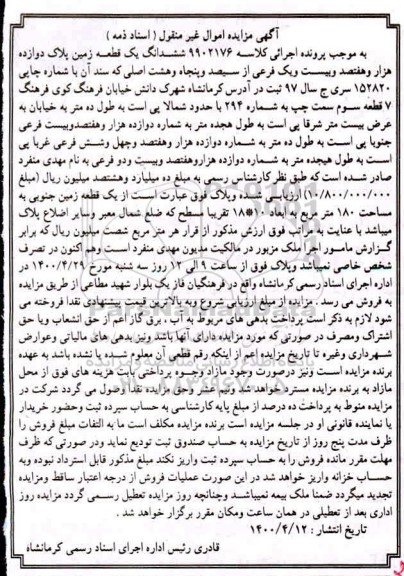 آگهی مزایده اموال غیر منقول ( اسناد ذمه )
به موجب پرونده اجرائی کلاسه ۹۹۰۲۱۷۶ ششدانگ یک قطعه زمین پلاک دوازده
هزار وهفتصد وبیست ویک فرعی از سیصد وپنجاه وهشت اصلی که سند آن با شماره چاپی
۱۵۲۸۲۰ سری ج سال ۹۷ ثبت در آدرس کرمانشاه شهرک دانش خیابان فرهنگ کوی فرهنگ
۷ قطعه سوم سمت چپ به شماره ۲۹۴ با حدود شمالا پی است به طول ده متر به خیابان به
عرض بیست متر شرقا پی است به طول هجده متر به شماره دوازده هزار وهفتصدوبیست فرعی
جنوبا پی است به طول ده متر به شماره دوازده هزار وهفتصد وچهل وشش فرعی غربا پی
است به طول هیجده متر به شماره دوازده هزاروهفتصد وبیست ودو فرعی به نام مهدی منفرد
صادر شده است که طبق نظر کارشناس رسمی به مبلغ ده میلیارد وهشتصد میلیون ریال (مبلغ
۱۰/۸۰۰/۰۰۰/۰۰۰) ارزیابی شده وپلاک فوق عبارت است از یک قطعه زمین جنوبی به
مساحت ۱۸۰ متر مربع به ابعاد ۱۰*۱۸ تقریبا مسطح که ضلع شمال معبر وسایر اضلاع پلاک
میباشد با عنایت به مراتب فوق ارزش مذکور از قرار هر متر مربع شصت میلیون ریال که برابر
گزارش مامور اجرا ملک مزبور در مالکیت مدیون مهدی منفرد است وهم اکنون در تصرف
شخص خاصی نمیباشد وپلاک فوق از ساعت ۹ الی ۱۲ روز سه شنبه مورخ ۱۴۰۰/۴/۲۹ در
اداره اجرای اسناد رسمی کرمانشاه واقع در فرهنگیان فاز یک بلوار شهید مطاعی از طریق مزایده
به فروش می رسد . مزایده از مبلغ ارزیابی شروع وبه بالاترین قیمت پیشنهادی نقدا فروخته می
شود لازم به ذکر است پرداخت بدهی های مربوط به آب ، برق گاز اعم از حق انشعاب ویا حق
اشتراک ومصرف در صورتی که مورد مزایده دارای آنها باشد ونیز بدهی های مالیاتی وعوارض
شهرداری وغیره تا تاریخ مزایده اعم از اینکه رقم قطعی آن معلوم شده یا نشده باشد به عهده
برنده مزایده است ونیز درصورت وجود مازاد وجوه پرداختی بابت هزینه های فوق از محل
مازاد به برنده مزایده مسترد خواهد شد ونیم عشر وحق مزایده نقدا وصول می گردد شرکت در
مزایده منوط به پرداخت ده درصد از مبلغ پایه کارشناسی به حساب سپرده ثبت وحضور خریدار
یا نماینده قانونی او در جلسه مزایده است برنده مزایده مکلف است ما به التفات مبلغ فروش را
ظرف مدت پنج روز از تاریخ مزایده به حساب صندوق ثبت تودیع نماید ودر صورتی که ظرف
مهلت مقرر مانده فروش را به حساب سپرده ثبت واریز نکند مبلغ مذکور قابل استرداد نبوده وبه
حساب خزانه واریز خواهد شد در این صورت عملیات فروش از درجه اعتبار ساقط ومزایده
تجدید میگردد ضمنا ملک بیمه نمیباشد وچنانچه روز مزایده تعطیل رسمی گردد مزایده روز
اداری بعد از تعطیلی در همان ساعت ومکان مقرر برگزار خواهد شد .
تاریخ انتشار : ۱۴۰۰/۴/۱۲
قادری رئیس اداره اجرای اسناد رسمی کرمانشاه